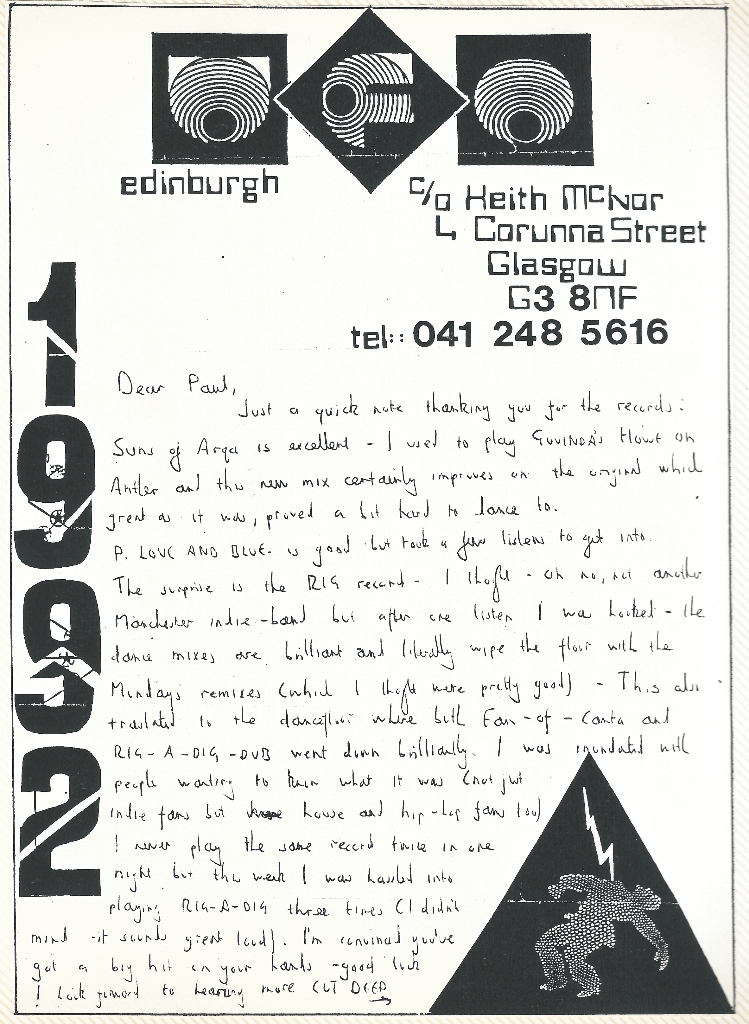 UFO
edinburgh
c/o Keith McIvor
4 Corunna Street
Glasgow
G3 8NF
tel:: 041 248 5616
1992
Dear Paul,
Just a quick note thanking you for the records:
Suns of Arqa is excellent - I used to play GOVINDA'S House on
Antler and this new mix certainly improves on the original which
great as it was, proved a bit hard to dance to.
P. LOVE AND BLUE. is good but took a few listens to get into.
The surprise is the RIG record - I thoght - oh no, not another
Manchester indie-band but after one listen I was hooked - the
dance mixes are brilliant and literally wipe the floor with the
Mundays remixes (which I thoght were pretty good) - This also
translated to the dancefloor where both and
RIG-A-DIG-DUB went down brilliantly. I was inundated with
people wanting to know what it was (not just
indie fans but house and hip-hop fans too)
I never play the same record twice in one
night but this week I was hassled into
playing RIG-A-DIG three times (I didn't
mind - it sounds great loud). I'm convinced you've
got a big hit on your hands - good luck
I look forward to hearing more CUT DEEP